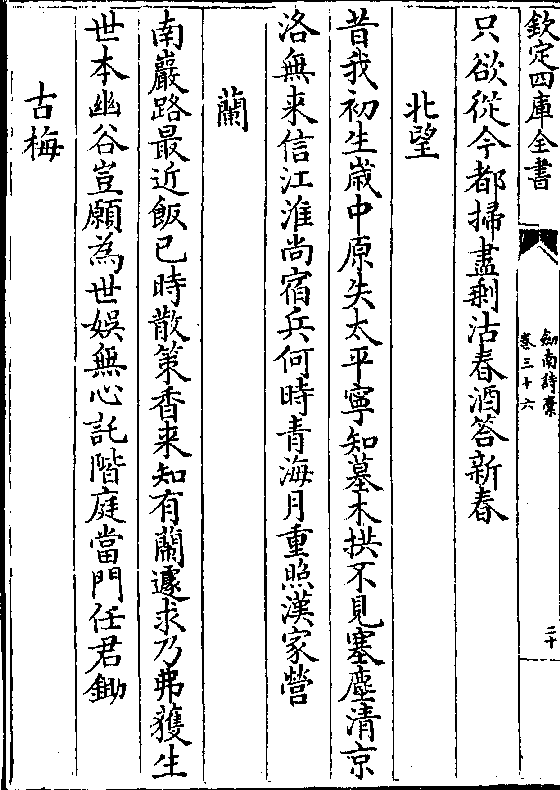 欽定四庫全書
劒南詩稾
卷三十六
二十
只欲從今都掃盡剩沽春酒答新春
北望
昔我初生嵗中原失太平寧知墓木拱不見塞塵清京
洛無来信江淮尚宿兵何時青海月重照漢家營
蘭
南巖路最近飯已時散策香来知有蘭遽求乃弗獲生
世本幽谷豈願為世娯無心託階庭當門任君鋤
古梅